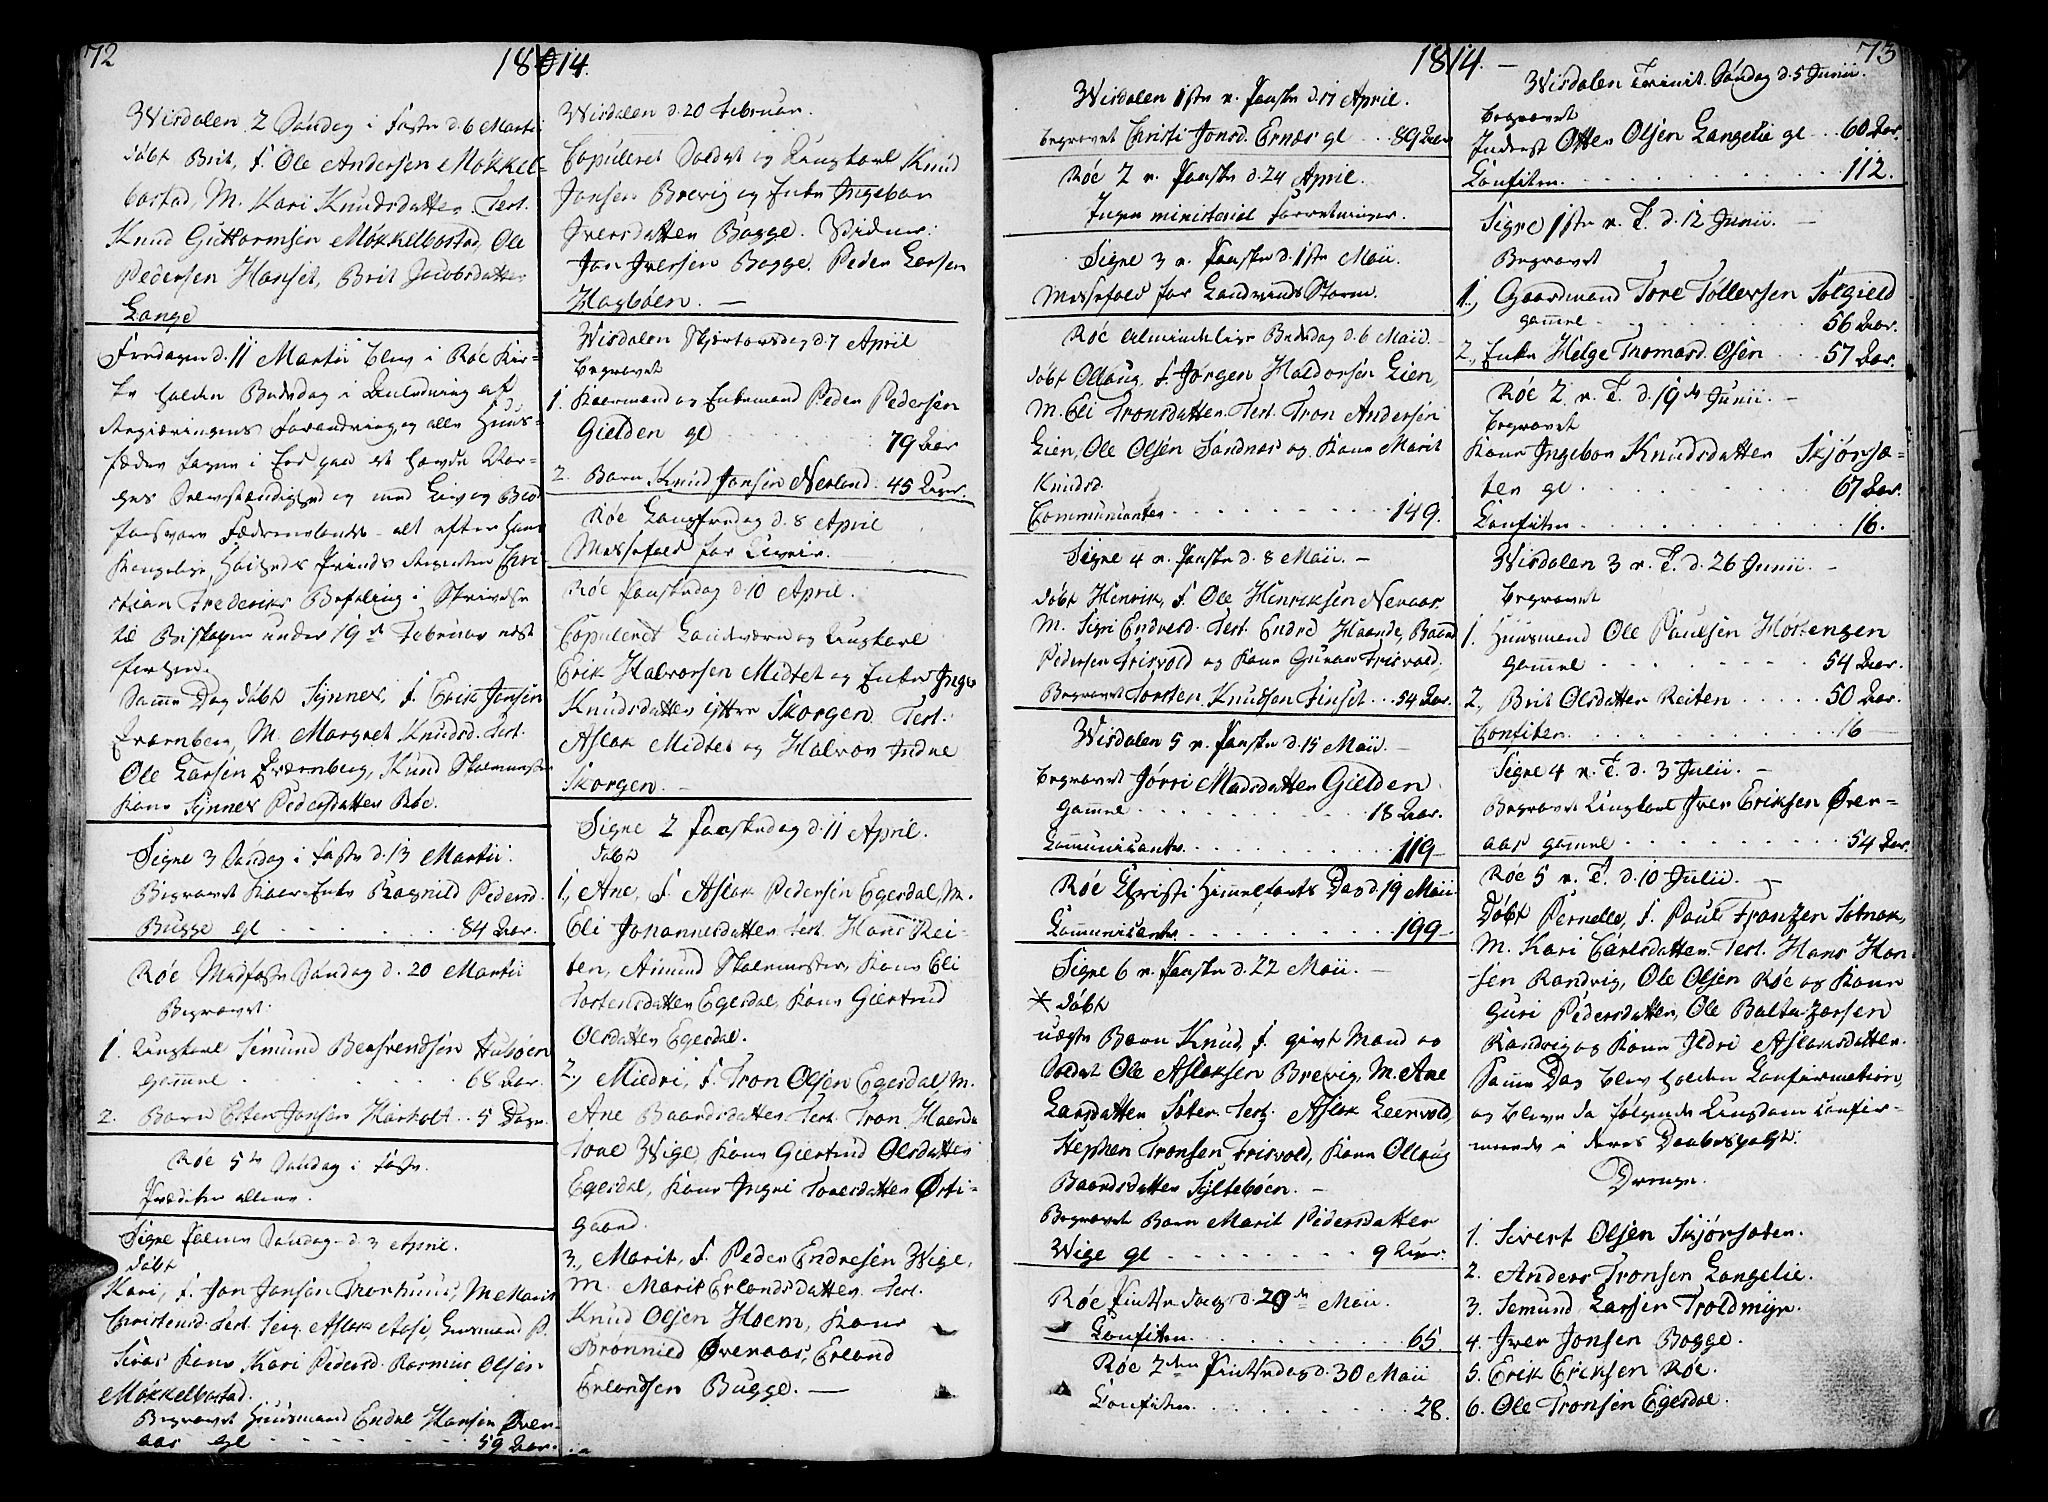 72
1814.
Wisdalen 2 Søndag i Faste d. 6 Martii
døbt Brit, F. Ole Andersen Møkkel-
bostad, M. Kari Knudsdatter. Test.
Knud Guttormsen Møkkelbostad, Ole
Pedersen Hanset, Brit Jacobsdatter
Lange
Fredagen d. 11 Martii blev i Røe Kir-
ke holden Bededag i Anledning af
Regieringens Forandring, og alle Huus-
fædre tagen i Eed paa at hævde Nor-
ges Selvstændighed og med Liv og Blod
forsvare Fædrenelandet - alt efter Hans
Kongelige Høiheds Prinds Regenten Chri-
stian Frederiks Befaling i Skrivelse
til Biskopen under 19de Februar nest
forhen.
Samme Dag døbt Synnev, F. Erik Jensen
Qværnberg, M. Margret Knudsd. Test.
Ole Larsen Qværnberg, Knud Skolemester
Kone Synnev Pedersdatter Røe.
Signe 3 Søndag i Faste d. 13 Martii.
Begravet Kaar-Enke Ragnild Pedersd.
Bugge gl . . . 84 Aar.
Røe Midfaste Søndag d. 20 Martii
Begravet:
1. Ungkarl Semund Bersvendsen Husbøen
gammel . . . 68 Aar.
2. Barn Ester Jonsen Hørholt . . 5 Dage.
Røe 5te Søndag i Faste.
Præken allene.
Signe Palme Søndag d. 3 April.
døbt
Kari, F. Jon Jonsen Tronhuus, M. Marit
Christensd. Test. Serg. Aslak Aase, Huusmand P.
Siras Kone Kari Pedersd. Rasmus Olsen
Møkkelbostad.
Begravet Huusmand Endre Hansen Øver-
aas gl . . . 59 Aar.
Wisdalen d. 20 Februar.
Copuleret Soldat og Ungkarl Knud
Jonsen Brevig og Enke Ingebor
Iversdatter Bogge. Vidner:
Jon Iversen Bogge. Peder Larsen
Hagbøen. —
Wisdalen Skjertorsdag d. 7 April
begravet
1. Kaarmand og Enkemand Peder Pedersen
Gielden gl . . . 79 Aar
2. Barn Knud Jonsen Nerland . 45 Uger.
Røe Langfredag d. 8 April
Messefald for Uveir.
Røe Paaskedag d. 10 April.
Copuleret Landeværn og Ungkarl
Erik Halvorsen Midtet og Enke Inge
Knudsdatter Yttre Skorgen. Test.
Aslak Midtet og Halvor Indre
Skorgen. —
Signe 2 Paaskedag d. 11 April.
døbt
1., Ane, F. Aslak Pedersen Egesdal, M.
Eli Johannesdatter. Test. Hans Rei-
ten, Amund Skolemester, Kone Eli
Torstensdatter Egesdal, Kone Giertrud
Olsdatter Egesdal.
2., Mildri, F. Tron Olsen Egesdal, M.
Ane Baardsdatter. Test. Tron Haarde
Tore Wige, Kone Giertrud Olsdatter
Egesdal, Kone Ingri Toresdatter Østi-
gaard.
3., Marit, F. Peder Endresen Wige,
M. Marit Erlandsdatter. Test.
Knud Olsen Hoem, Kone
Brønnild Øveraas, Erland
Erlandsen Bugge. —
1814. —
73
Wisdalen 1ste p. Paaske d. 17 April.
begravet Christi Jonsd. Ernæs gl . . 89 Aar
Røe 2 p. Paaske d. 24 April.
Ingen ministerial Forretninger.
Signe 3 p. Paaske d. 1ste Maii.
Messefald for Landvinds Storm.
Røe Almindelige Bededag d. 6 Maii
døbt Ollaug, F. Jørgen Haldorsen Lien,
M. Eli Tronsdatter. Test. Tron Andersen
Lien, Ole Olsen Sandnæs og Kone Marit
Knudsd.
Communicantes . . . 149.
Signe 4 p. Paaske d. 8 Maii. —
døbt Henrik, F. Ole Henriksen Neraas,
M. Sigri Endresd. Test. Endre Haande, Baard
Pedersen Frisvold og Kone Guran Frisvold.
Begravet Torsten Knudsen Finset . . . 54 Aar.
Wisdalen 5 p. Paaske d. 15 Maii. —
begravet Jørri Madsdatter Gielden
gammel . . . 18 Aar.
Communicantes . . . 119 —
Røe Christi Himmelfarts Dag d. 19 Maii
Communicantes . . . 199 —
Signe 6 p. Paaske d. 22 Maii. —
* døbt
uægte Barn Knud, F. givt Mand og
Soldat Ole Aslaksen Brevig, M. Ane
Larsdatter Sæter. Test. Aslak Leervold,
Stephen Tronsen Frisvold, Kone Ollaug
Baardsdatter Syltebøen. —
Begravet Barn Marit Pedersdatter
Wige gl . . . 9 Uger.
Røe Pintsedag d. 29de Maii.
Confiten. . . . 65.
Røe 2den Pintsedag d. 30 Maii
Confiten. . . . 28.
Wisdalen Trinit. Søndag d. 5 Junii.
begravet
Inderst Otter Olsen Langelie gl . . 60 Aar.
Confiten. . . . 112.
Signe 1ste p. T. d. 12 Junii. —
Begravet
1., Gaardmand Tore Tollevsen Solgield
gammel . . . 56 Aar.
2., Enke Helge Thomasd. Osen . . . 57 Aar.
Røe 2 p. T. d. 19de Junii. —
begravet
Kone Ingebor Knudsdatter Skjørsæ-
ter gl . . . 67 Aar.
Confiten. . . . 16.
Wisdalen 3 p. T. d. 26 Junii. —
begravet
1. Huusmand Ole Paulsen Hørtengen
gammel . . . 54 Aar.
2., Brit Olsdatter Reiten . . . 50 Aar.
Confiten. . . . 16 —
Signe 4 p. T. d. 3 Julii. —
Begravet Ungkarl Iver Eriksen Øver-
aas gammel . . . 54 Aar.
Røe 5 p. T. d. 10 Julii. —
Døbt Pernelle, F. Paul Frantzen Solnør,
M. Kari Carlsdatter. Test. Hans Han-
sen Randvig, Ole Olsen Røe og Kone
Guri Pedersdatter, Ole Baltazarsen
Randvig og Kone Ildri Aslaksdatter.
Samme Dag blev holden Confirmation,
og bleve da følgende Ungdom confir-
merede i deres Daabespagt:
Drenge.
1. Sivert Olsen Skjørsæter.
2. Anders Tronsen Langelie.
3. Semund Larsen Troldmyr.
4. Iver Jonsen Bogge.
5. Erik Eriksen Røe.
6. Ole Tronsen Egesdal.